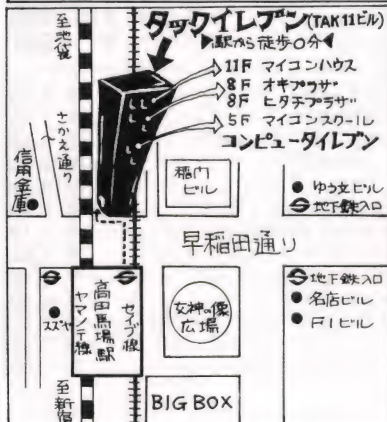 タックイレブン(TAK11ビル)
▶駅から徒歩0分◀
11F マイコンハウス
8F オキプラザ
8F ヒタチプラザ
5F マイコンスクール
コンピュータイレブン
至池袋
さかえ通り
信用金庫
稲門
ビル
● ゆう文ビル
地下鉄入口
早稲田通り
スズヤ
ヤマノテ線
高田馬場駅
セイブ線
女神の像
広場
地下鉄入口
● 名店ビル
● F1ビル
至新宿
BIG BOX